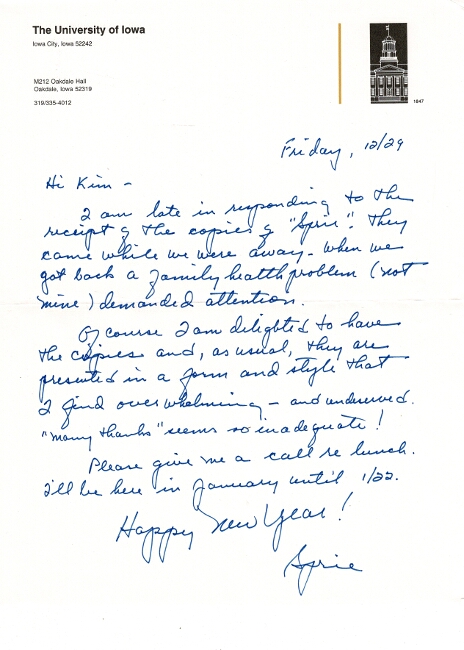 The University of Iowa
Iowa City, Iowa 52242
M212 Oakdale Hall
Oakdale, Iowa 52319
319/335-4012
1847
Friday, 12/29
Hi Kim -
I am late in responding to the
receipt of the copies of "Sprie". They
came while we were away - when we
got back a family health problem (not
mine) demanded attention.
Of course I am delighted to have
the copies and, as usual, they are
presented in a form and style that
I find overwhelming - and undeserved.
"Many thanks" seems so inadequate!
Please give me a call re lunch.
I'll be here in January until 1/22.
Happy New Year!
Sprie